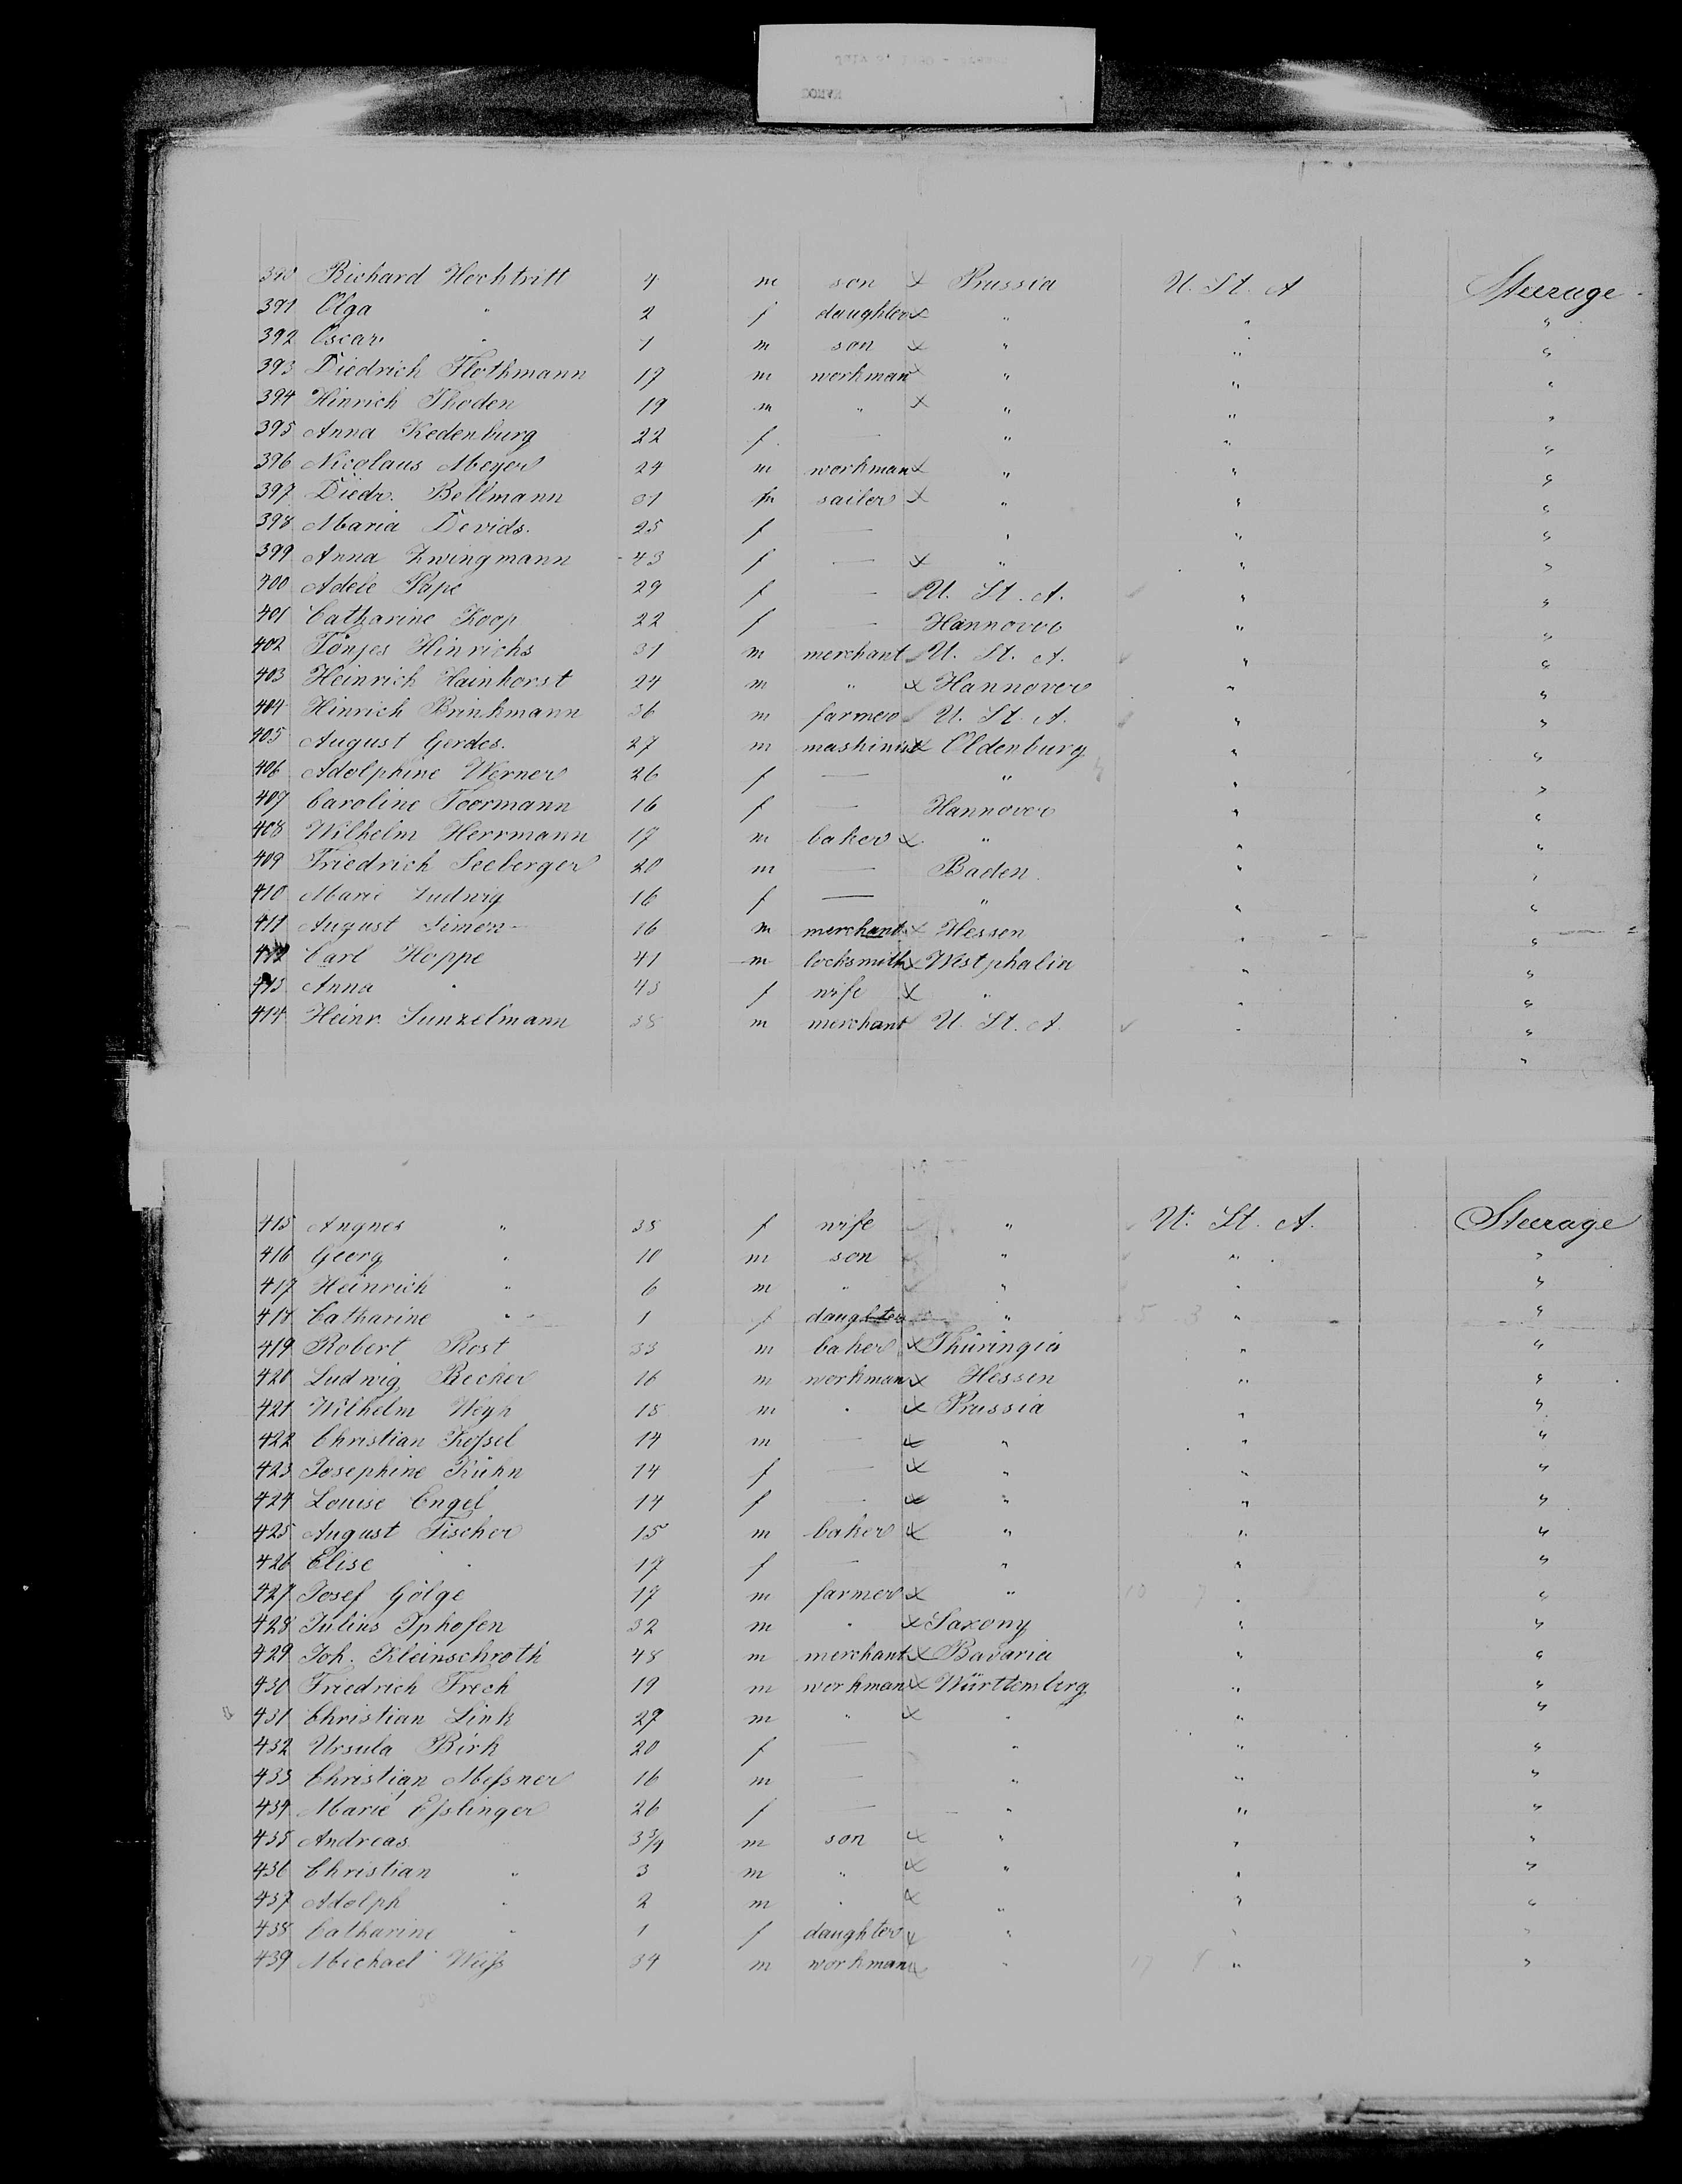 390 Richard Hochtritt 4 m son x Prussia U. St. A Steerage
391 Olga " 2 f daughter x " " "
392 Oscar " 1 m son x " " "
393 Diedrich Flothmann 17 m workman x " " "
394 Hinrich Thoden 19 m " x " " "
395 Anna Kedenburg 22 f — " " "
396 Nicolaus Meyer 24 m workman x " " "
397 Diedr. Bellmann 31 m sailer x " " "
398 Maria Devids. 25 f — " " "
399 Anna Zwingmann 43 f — x " " "
400 Adele Pape 29 f — U. St. A. " "
401 Catharine Koop 22 f — Hannover " "
402 Tönjes Hinrichs 31 m merchant U. St. A. " "
403 Heinrich Hainhorst 24 m " x Hannover " "
404 Hinrich Brinkmann 36 m farmer U. St. A. " "
405 August Gerdes. 27 m mashinist x Oldenburg " "
406 Adolphine Werner 26 f — " " "
407 Caroline Toormann 16 f — Hannover " "
408 Wilhelm Herrmann 17 m baker x " " "
409 Friedrich Seeberger 20 m — Baden. " "
410 Marie Ludwig 16 f — " " "
411 August Simon 16 m merchant x Hessen " "
412 Carl Hoppe 41 m locksmith x Westphalia " "
413 Anna " 43 f wife x " " "
414 Heinr. Sunzelmann 38 m merchant U. St. A. " "
"
415 Angnes " 38 f wife " U. St. A. Steerage
416 Georg " 10 m son " " "
417 Heinrich " 6 m " " " "
418 Catharine " 1 f daughter " 5 3 " "
419 Robert Rost 33 m baker x Thüringia " "
420 Ludwig Becker 16 m workman x Hessen " "
421 Wilhelm Weyh 15 m " x Prussia " "
422 Christian Keſsel 14 m — x " " "
423 Josephine Kühn 14 f — x " " "
424 Louise Engel 14 f — x " " "
425 August Fischer 15 m baker x " " "
426 Elise " 17 f — " " "
427 Josef Gölge 17 m farmer x " 10 7 " "
428 Julius Iphofen 32 m " x Saxony " "
429 Joh. Kleinschroth 48 m merchant x Bavaria " "
430 Friedrich Frech 19 m workman x Württemberg " "
431 Christian Link 27 m " x " " "
432 Ursula Birk 20 f — " " "
433 Christian Meſsner 16 m — " " "
434 Marie Eſslinger 26 f — " " "
435 Andreas " 3 3/4 m son x " " "
436 Christian " 3 m " x " " "
437 Adolph " 2 m " x " " "
438 Catharine " 1 f daughter x " " "
439 Michael Weiſs 34 m workman x " 17 8 " "